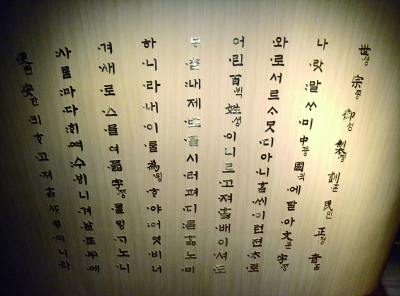 世솅宗종御엉製졩訓훈民민正졍音ᅙᅳᆷ
나랏말ᄊᆞ미中듀ᇰ國귁에달아文문字ᄍᆞᆼ
와로서르ᄉᆞᄆᆞᆺ디아니ᄒᆞᆯᄊᆡ이런젼ᄎᆞ로
어린百ᄇᆡᆨ姓셔ᇰ이니르고져호ᇙ배이셔도
ᄆᆞᄎᆞᆷ내제ᄠᅳ들시러펴디몯ᄒᆞᇙ노미
하니라내이ᄅᆞᆯ爲윙ᄒᆞ야어엿비너
겨새로스믈여듧字ᄍᆞᆼᄅᆞᆯᄆᆡᇰᄀᆞ노니
사ᄅᆞᆷ마다ᄒᆡᅇᅧ수ᄫᅵ니겨날로ᄡᅮ메
便뼌安ᅙᅡᆫ킈ᄒᆞ고져ᄒᆞᇙᄯᆞᄅᆞ미니라